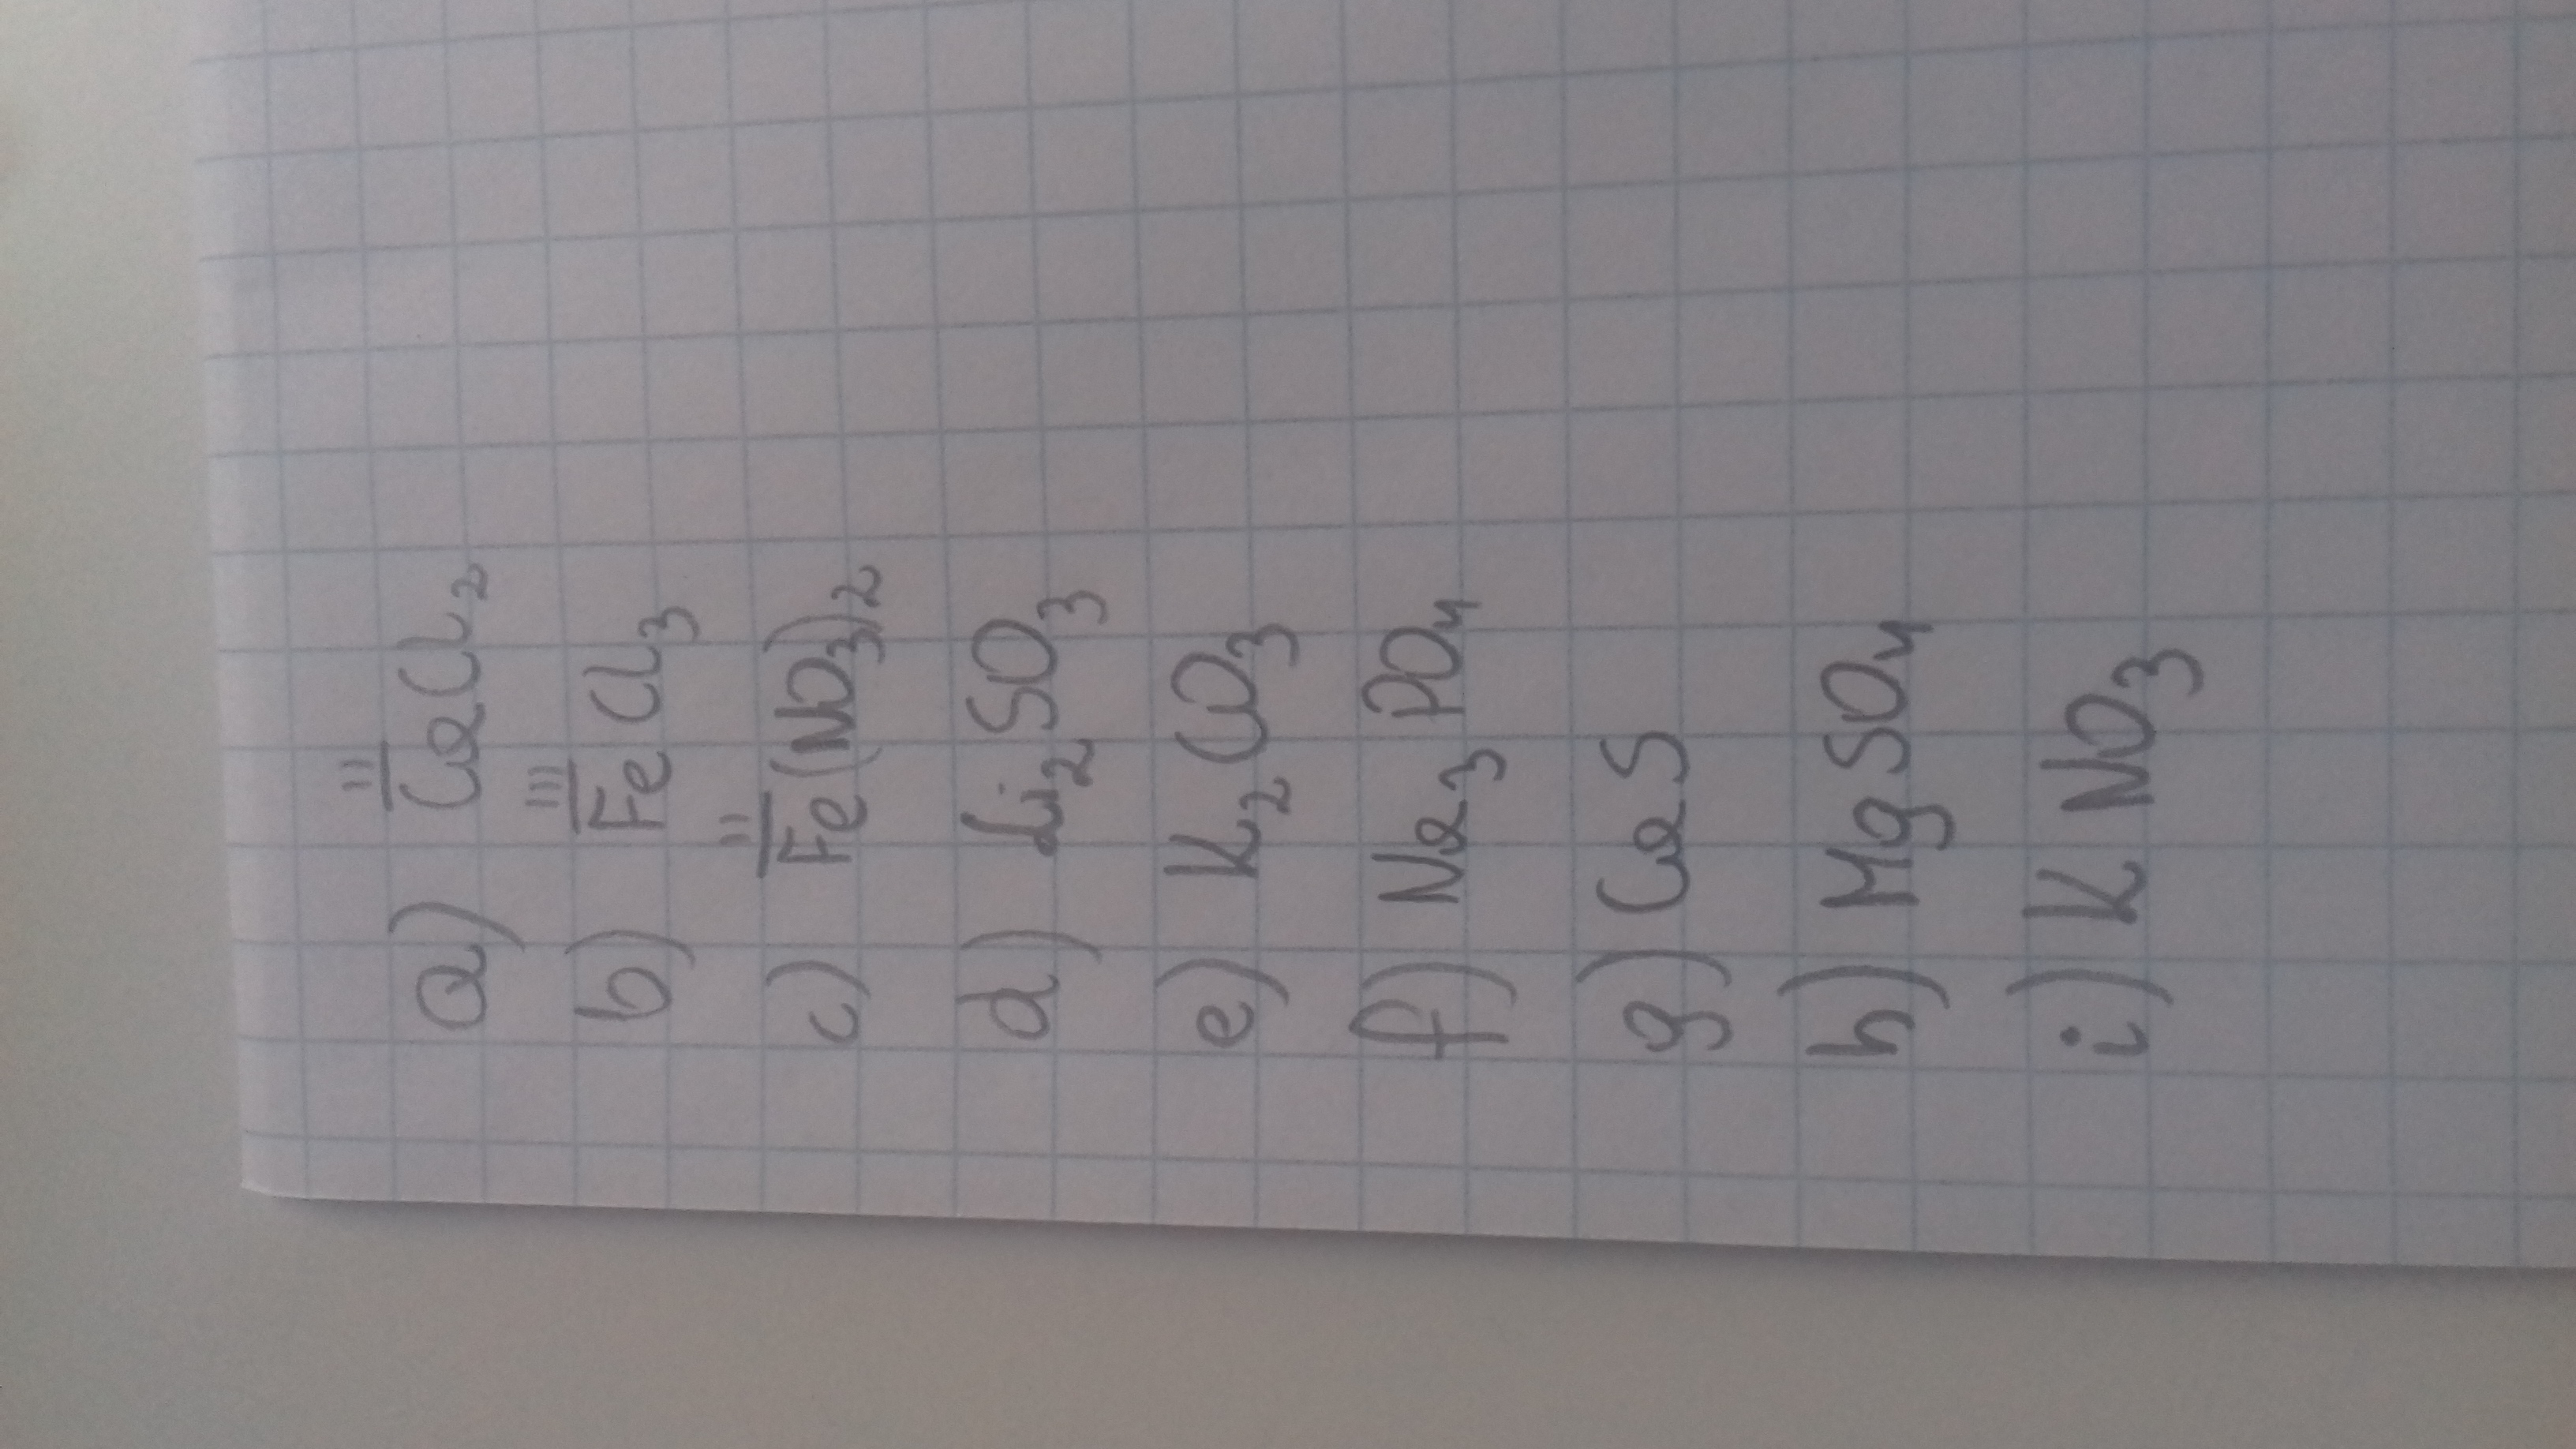 a) II CaCl2
b) III FeCl3
c) II Fe(NO3)2
d) Li2SO3
e) K2CO3
f) Na3PO4
g) CaS
h) MgSO4
i) KNO3